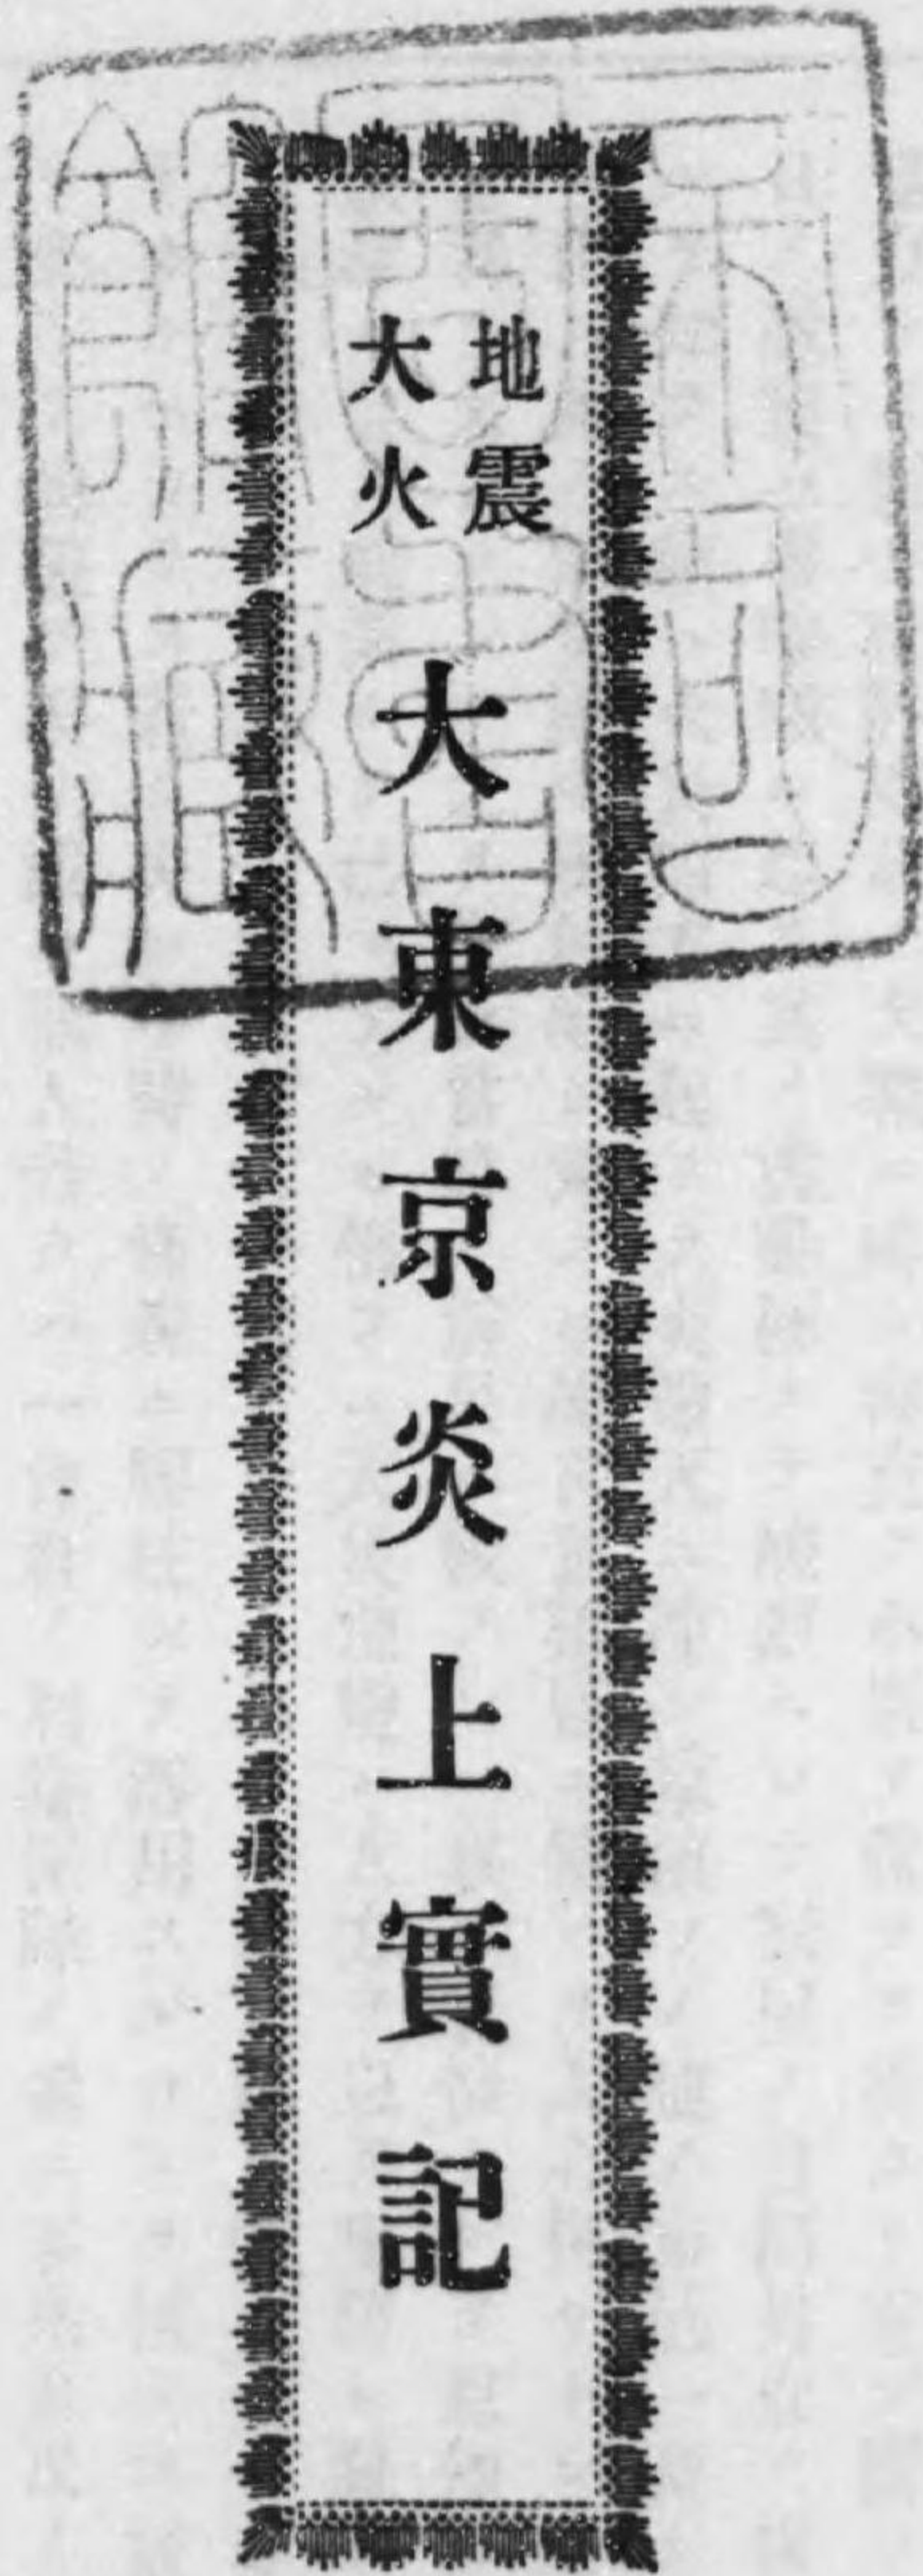 地震
大火
大東京炎上實記
帝國
圖書
館藏